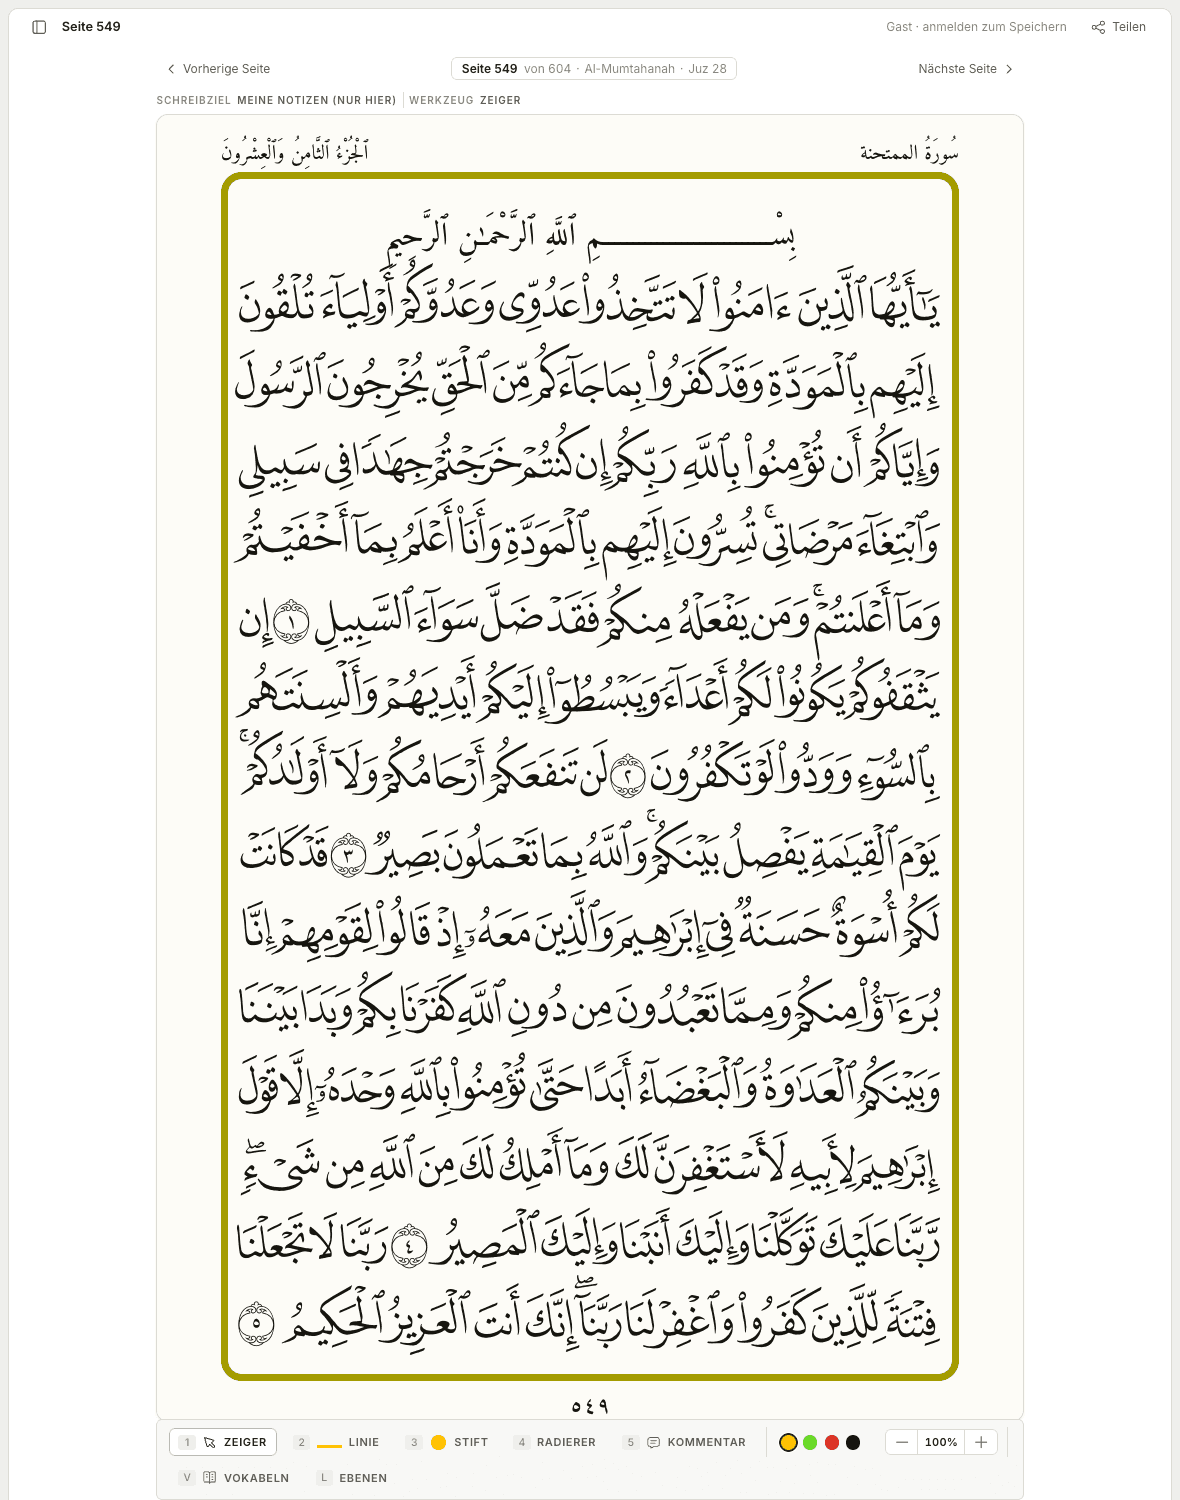 Seite 549
Gast · anmelden zum Speichern
Teilen
Vorherige Seite
Seite 549 von 604 · Al-Mumtahanah · Juz 28
Nächste Seite
SCHREIBZIEL MEINE NOTIZEN (NUR HIER) WERKZEUG ZEIGER
سُورَةُ الممتحنة
ٱلْجُزْءُ ٱلثَّامِنُ وَٱلْعِشْرُونَ
بِسْمِ ٱللَّهِ ٱلرَّحْمَـٰنِ ٱلرَّحِيمِ
يَـٰٓأَيُّهَا ٱلَّذِينَ ءَامَنُوا۟ لَا تَتَّخِذُوا۟ عَدُوِّى وَعَدُوَّكُمْ أَوْلِيَآءَ تُلْقُونَ
إِلَيْهِم بِٱلْمَوَدَّةِ وَقَدْ كَفَرُوا۟ بِمَا جَآءَكُم مِّنَ ٱلْحَقِّ يُخْرِجُونَ ٱلرَّسُولَ
وَإِيَّاكُمْ أَن تُؤْمِنُوا۟ بِٱللَّهِ رَبِّكُمْ إِن كُنتُمْ خَرَجْتُمْ جِهَـٰدًا فِى سَبِيلِى
وَٱبْتِغَآءَ مَرْضَاتِى ۚ تُسِرُّونَ إِلَيْهِم بِٱلْمَوَدَّةِ وَأَنَا۠ أَعْلَمُ بِمَآ أَخْفَيْتُمْ
وَمَآ أَعْلَنتُمْ ۚ وَمَن يَفْعَلْهُ مِنكُمْ فَقَدْ ضَلَّ سَوَآءَ ٱلسَّبِيلِ ١ إِن
يَثْقَفُوكُمْ يَكُونُوا۟ لَكُمْ أَعْدَآءً وَيَبْسُطُوٓا۟ إِلَيْكُمْ أَيْدِيَهُمْ وَأَلْسِنَتَهُم
بِٱلسُّوٓءِ وَوَدُّوا۟ لَوْ تَكْفُرُونَ ٢ لَن تَنفَعَكُمْ أَرْحَامُكُمْ وَلَآ أَوْلَـٰدُكُمْ ۚ
يَوْمَ ٱلْقِيَـٰمَةِ يَفْصِلُ بَيْنَكُمْ ۚ وَٱللَّهُ بِمَا تَعْمَلُونَ بَصِيرٌ ٣ قَدْ كَانَتْ
لَكُمْ أُسْوَةٌ حَسَنَةٌ فِىٓ إِبْرَٰهِيمَ وَٱلَّذِينَ مَعَهُۥٓ إِذْ قَالُوا۟ لِقَوْمِهِمْ إِنَّا
بُرَءَٰٓؤُا۟ مِنكُمْ وَمِمَّا تَعْبُدُونَ مِن دُونِ ٱللَّهِ كَفَرْنَا بِكُمْ وَبَدَا بَيْنَنَا
وَبَيْنَكُمُ ٱلْعَدَٰوَةُ وَٱلْبَغْضَآءُ أَبَدًا حَتَّىٰ تُؤْمِنُوا۟ بِٱللَّهِ وَحْدَهُۥٓ إِلَّا قَوْلَ
إِبْرَٰهِيمَ لِأَبِيهِ لَأَسْتَغْفِرَنَّ لَكَ وَمَآ أَمْلِكُ لَكَ مِنَ ٱللَّهِ مِن شَىْءٍ ۖ
رَّبَّنَا عَلَيْكَ تَوَكَّلْنَا وَإِلَيْكَ أَنَبْنَا وَإِلَيْكَ ٱلْمَصِيرُ ٤ رَبَّنَا لَا تَجْعَلْنَا
فِتْنَةً لِّلَّذِينَ كَفَرُوا۟ وَٱغْفِرْ لَنَا رَبَّنَآ ۖ إِنَّكَ أَنتَ ٱلْعَزِيزُ ٱلْحَكِيمُ ٥
٥٤٩
1 ZEIGER 2 LINIE 3 STIFT 4 RADIERER 5 KOMMENTAR 100%
V VOKABELN L EBENEN